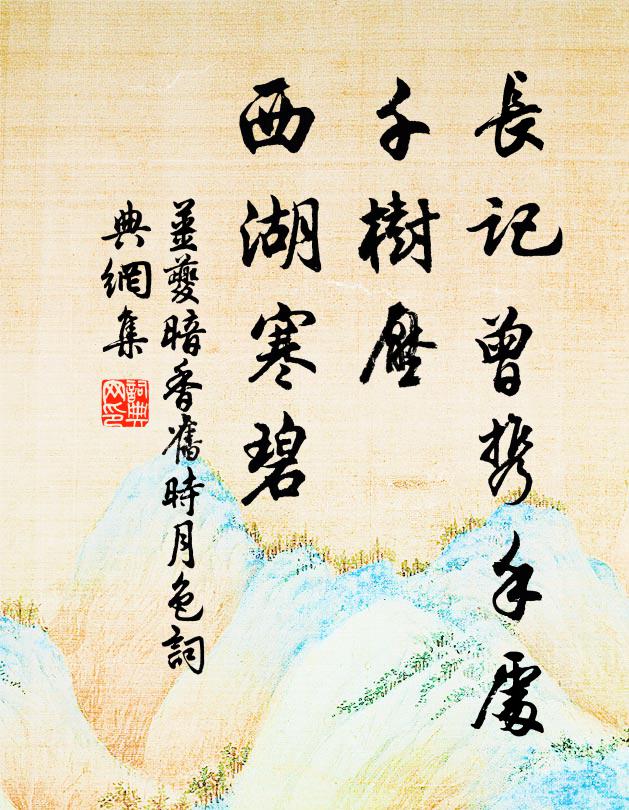 長記曾携手處
千樹壓
西湖寒碧
姜夔暗香舊時月色詞
典網集
詞典網印